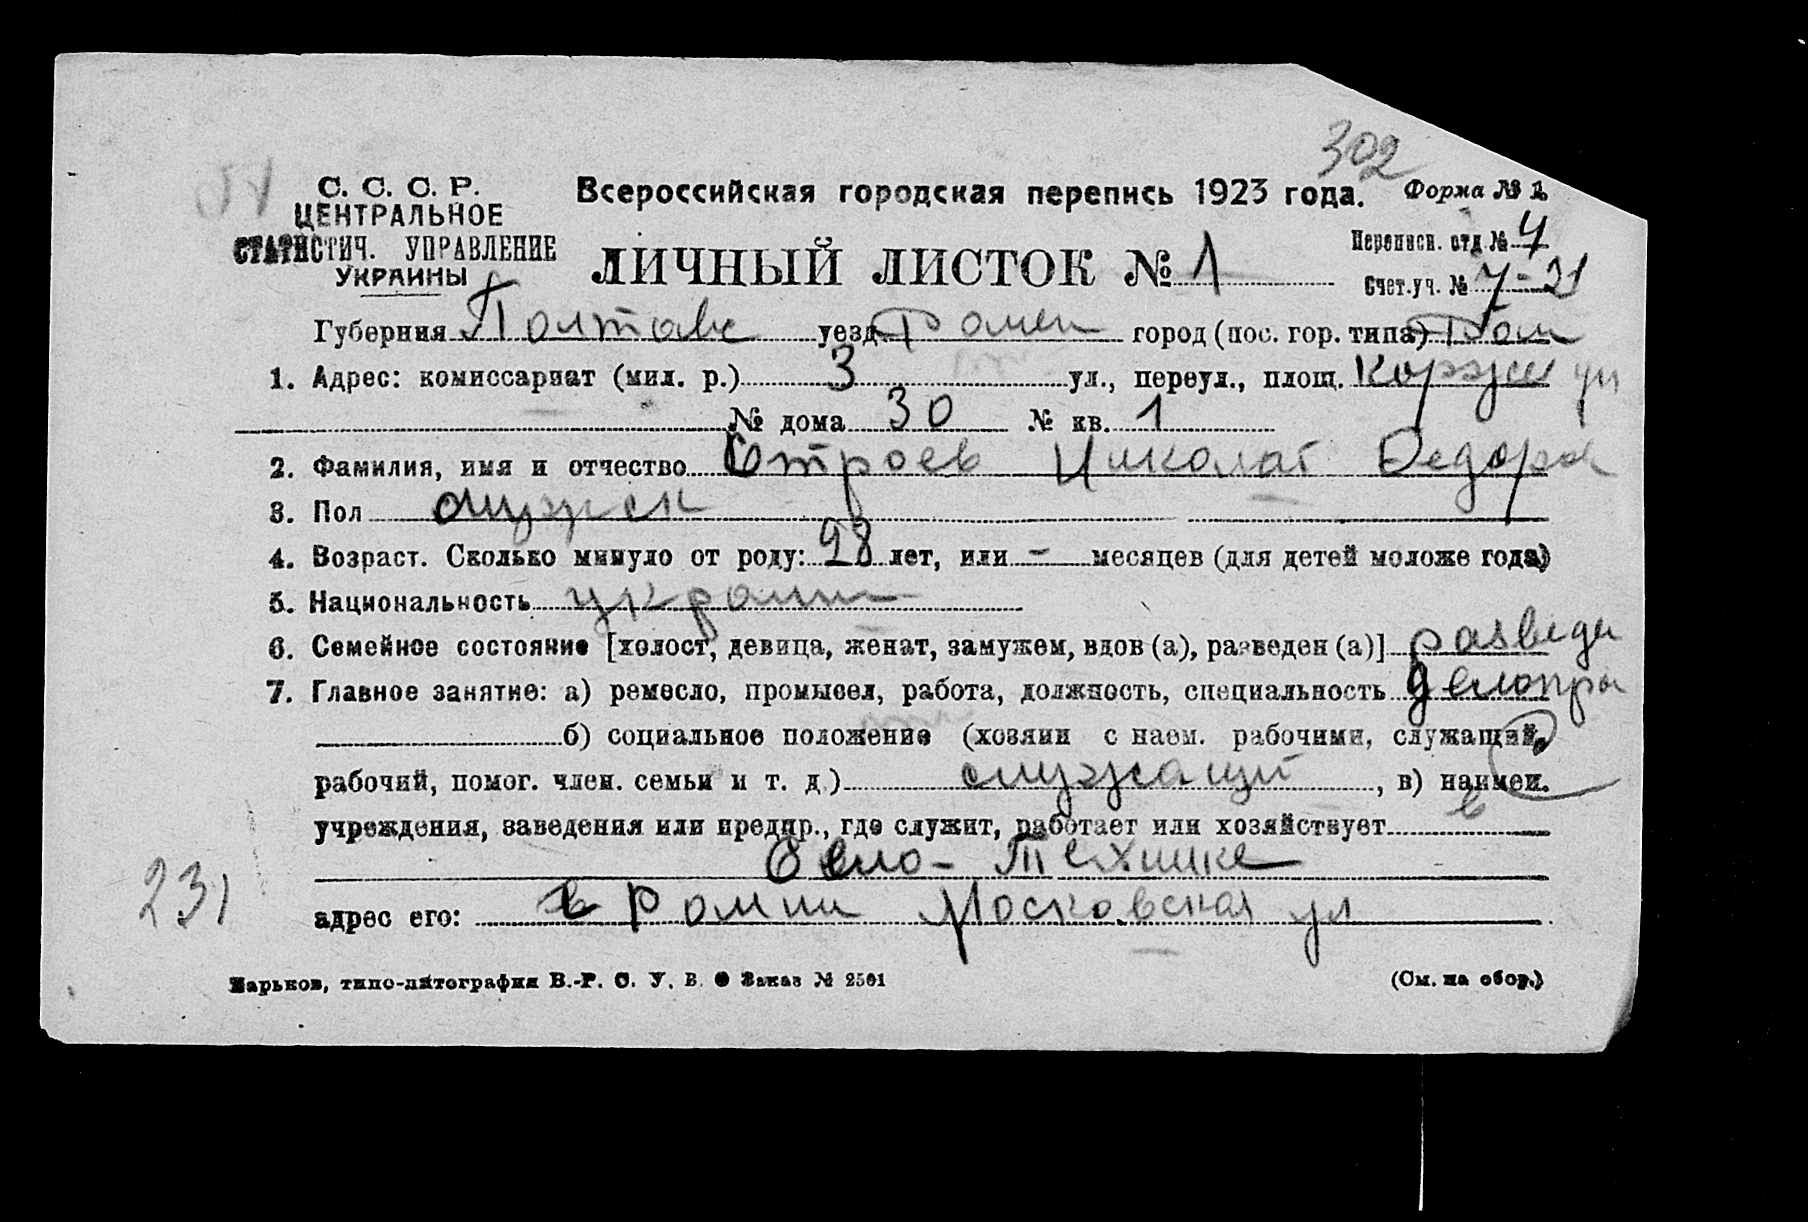 302
С. С. С. Р.
ЦЕНТРАЛЬНОЕ
СТАТИСТИЧ. УПРАВЛЕНИЕ
УКРАИНЫ
Всероссийская городская перепись 1923 года. Форма № 1
Переписн. отд. № 4
ЛИЧНЫЙ ЛИСТОК № 1
Счет.уч. № 7-21
Губерния Полтавс уезд Ромен город (пос. гор. типа) Ром
1. Адрес: комиссариат (мил. р.) 3 ул., переул., площ. Корж ул
№ дома 30 № кв. 1
2. Фамилия, имя и отчество Строев Николай Федоро
3. Пол мужск
4. Возраст. Сколько минуло от роду: 28 лет, или - месяцев (для детей моложе года)
5. Национальность украин
6. Семейное состояние [холост, девица, женат, замужем, вдов (а), разведен (а)] разведен
7. Главное занятие: а) ремесло, промысел, работа, должность, специальность делопро
б) социальное положение (хозяин с наем. рабочими, служащий,
рабочий, помог. член. семьи и т. д.) служащий, в) наимен.
учреждения, заведения или предпр., где служит, работает или хозяйствует в
Село-Технике
адрес его: в Ромни Московская ул
231
Харьков, типо-литография В.-Р. С. У. В. Заказ № 2501
(См. на обор.)